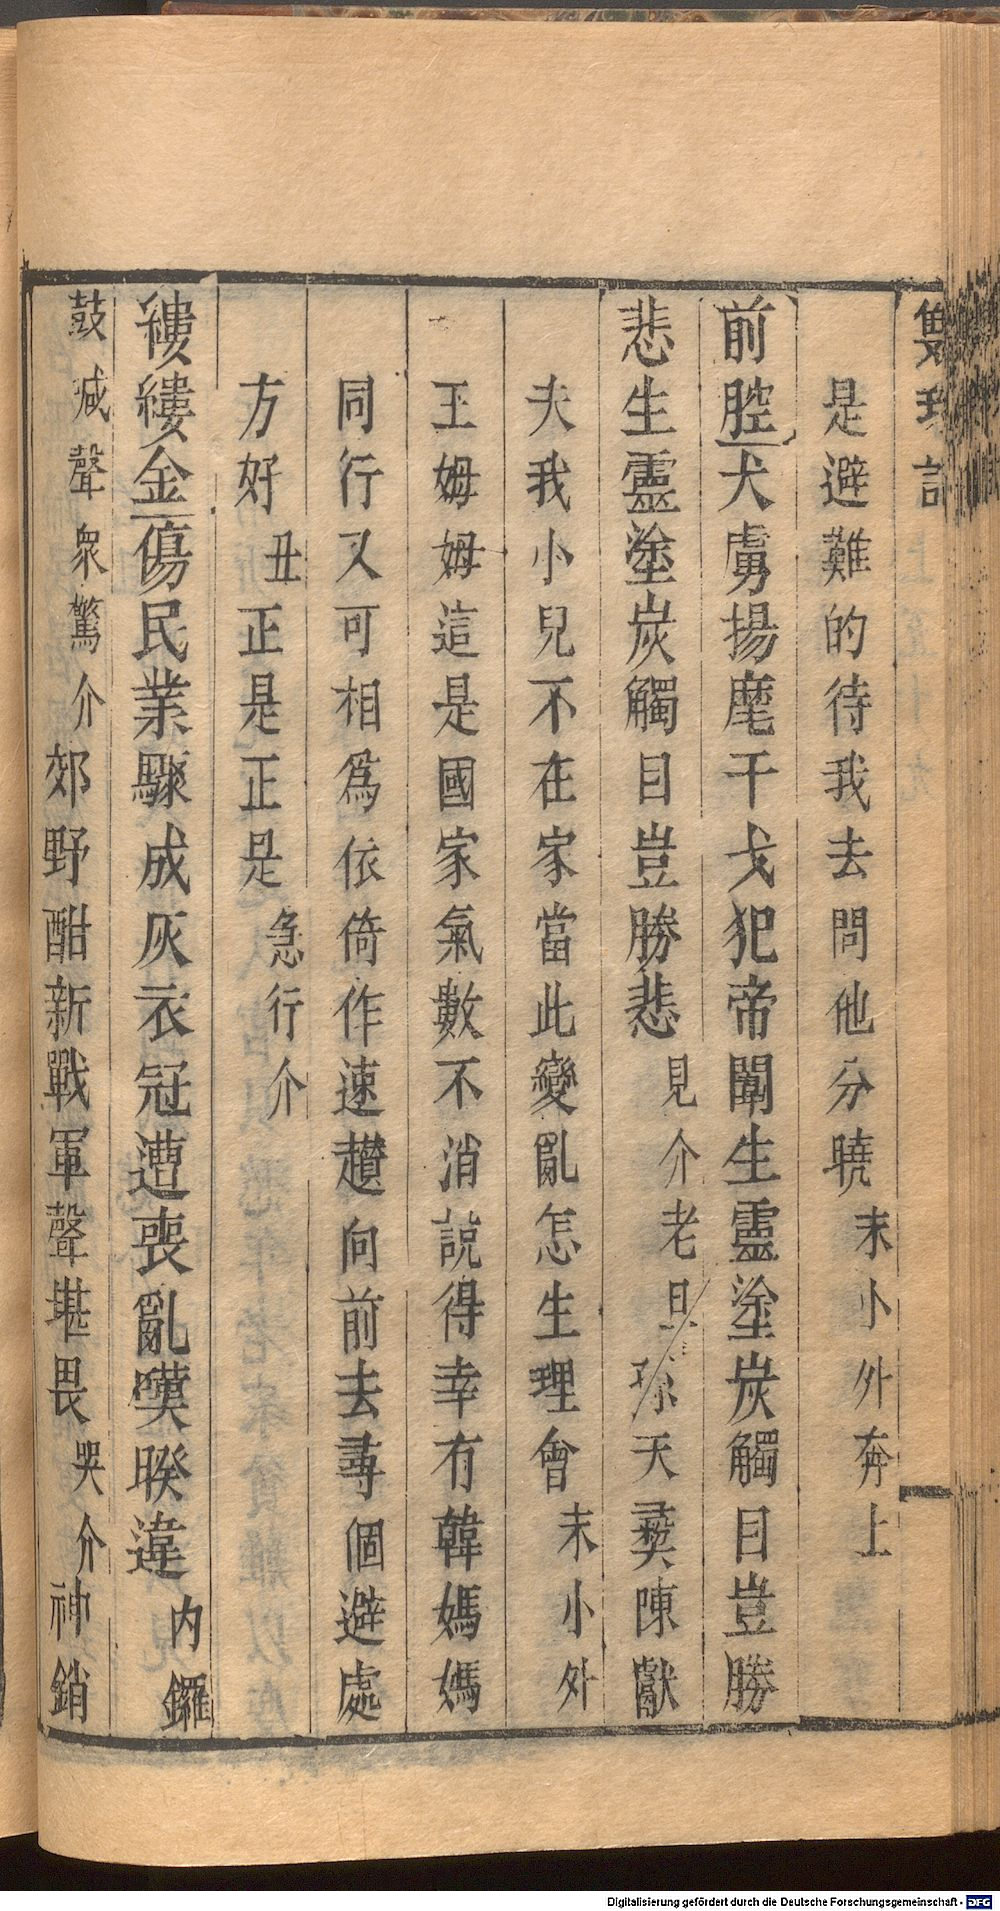 雙珠記
是避難的待我去問他分曉末小外奔上
前腔犬虜揚麾干戈犯帝闈生靈塗炭觸目豈勝
悲生靈塗炭觸目豈勝悲見介老旦孫天彝陳獻
夫我小兒不在家當此變亂怎生理會末小外
王姆姆這是國家氣數不消說得幸有韓媽媽
同行又可相爲依倚作速趲向前去尋個避處
方好丑正是正是急行介
縷縷金傷民業驟成灰衣冠遭喪亂嘆暌違內鑼
鼓喊聲衆驚介郊野酣新戰軍聲堪畏哭介神銷
Digitalisierung gefördert durch die Deutsche Forschungsgemeinschaft - DFG